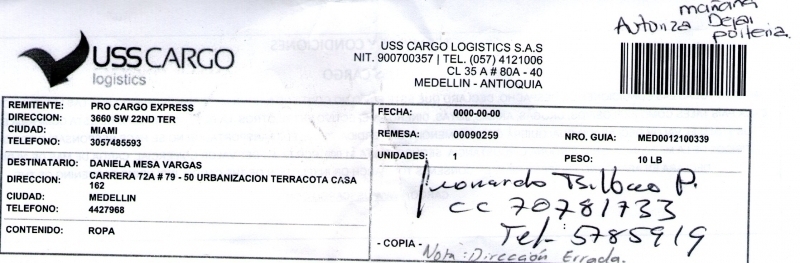 mañana
Autoriza Dejar
porteria.
USSCARGO
logistics
USS CARGO LOGISTICS S.A.S
NIT. 900700357 | TEL. (057) 4121006
CL 35 A # 80A - 40
MEDELLIN - ANTIOQUIA
REMITENTE: PRO CARGO EXPRESS
DIRECCION: 3660 SW 22ND TER
CIUDAD: MIAMI
TELEFONO: 3057485593
DESTINATARIO: DANIELA MESA VARGAS
DIRECCION: CARRERA 72A # 79 - 50 URBANIZACION TERRACOTA CASA
162
CIUDAD: MEDELLIN
TELEFONO: 4427968
CONTENIDO: ROPA
FECHA: 0000-00-00
REMESA: 00090259 NRO. GUIA: MED0012100339
UNIDADES: 1 PESO: 10 LB
Leonardo Bilbao P.
CC 70781733
Tel: 5785919
- COPIA -
Nota: Dirección Errada.